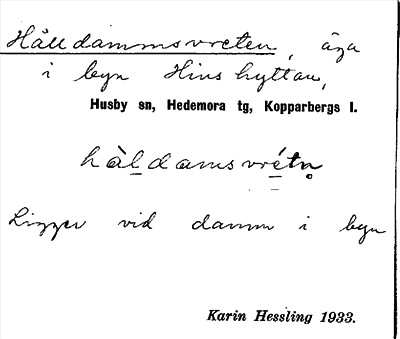 Hålldammsvreten, äga
i byn Hinshyttan,
Husby sn, Hedemora tg, Kopparbergs l.
hàldamsvrétn̥
Ligger vid damm i byn
Karin Hessling 1933.